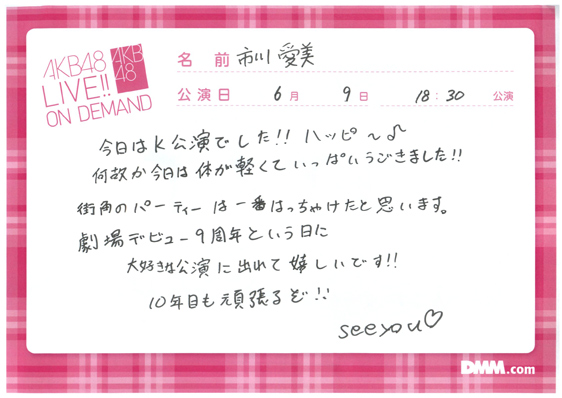 AKB48
LIVE!!
ON DEMAND
AKB
48
名 前 市川 愛美
公演日 6月 9日 18:30 公演
今日はK公演でした!! ハッピ〜♪
何故か今日は体が軽くていっぱいうごきました!!
街角のパーティーは一番はっちゃけたと思います。
劇場デビュー9周年という日に
大好きな公演に出れて嬉しいです!!
10年目も頑張るぞ!!
see you♡
DMM.com